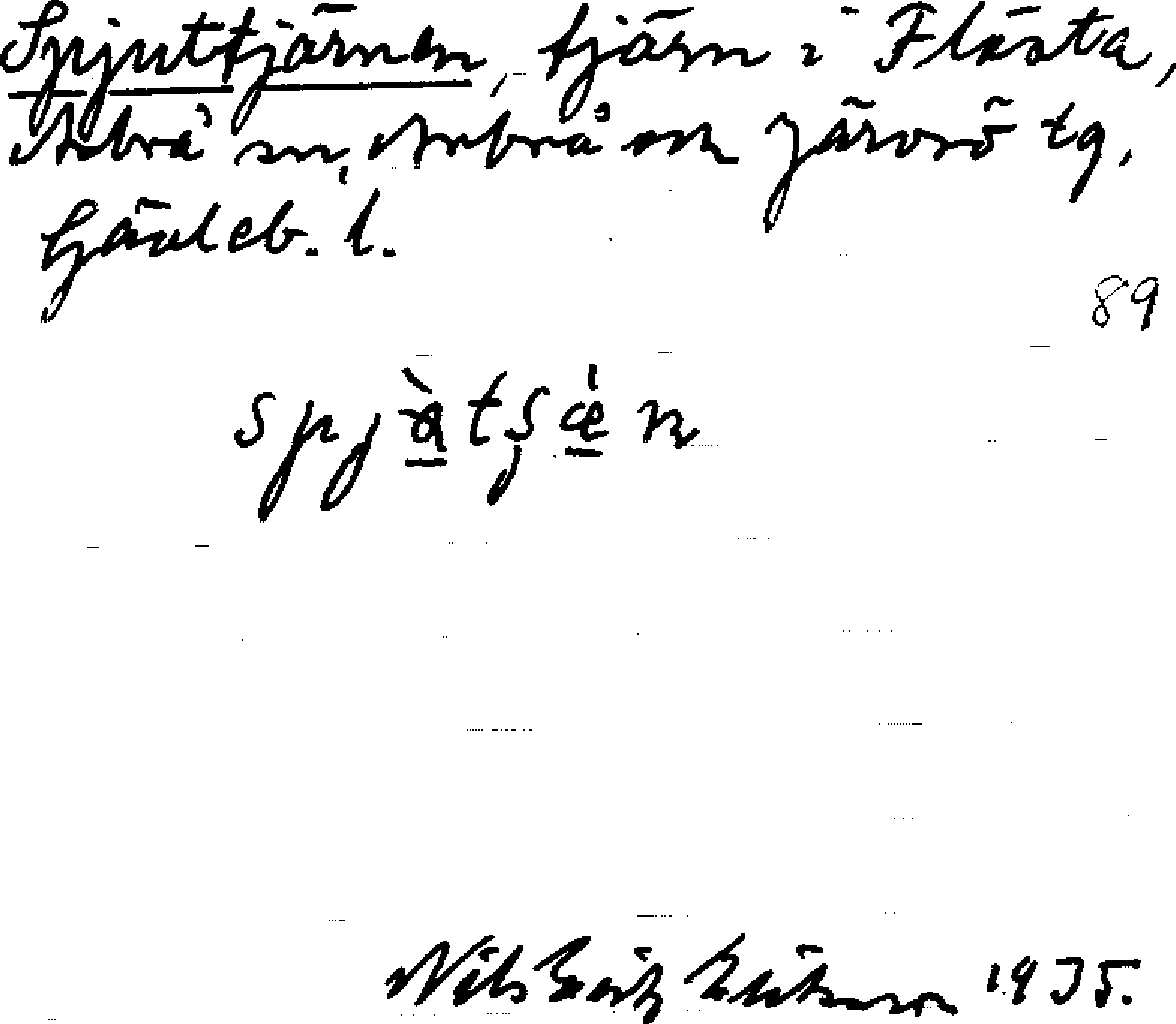 Spjuttjärnen, tjärn i Flästa,
Arbrå sn, Arbrå och Järvsö tg,
Gävleb. l.
89
spjɑ̀tʂæ̍n
Nils Erik Eriksson 1935.